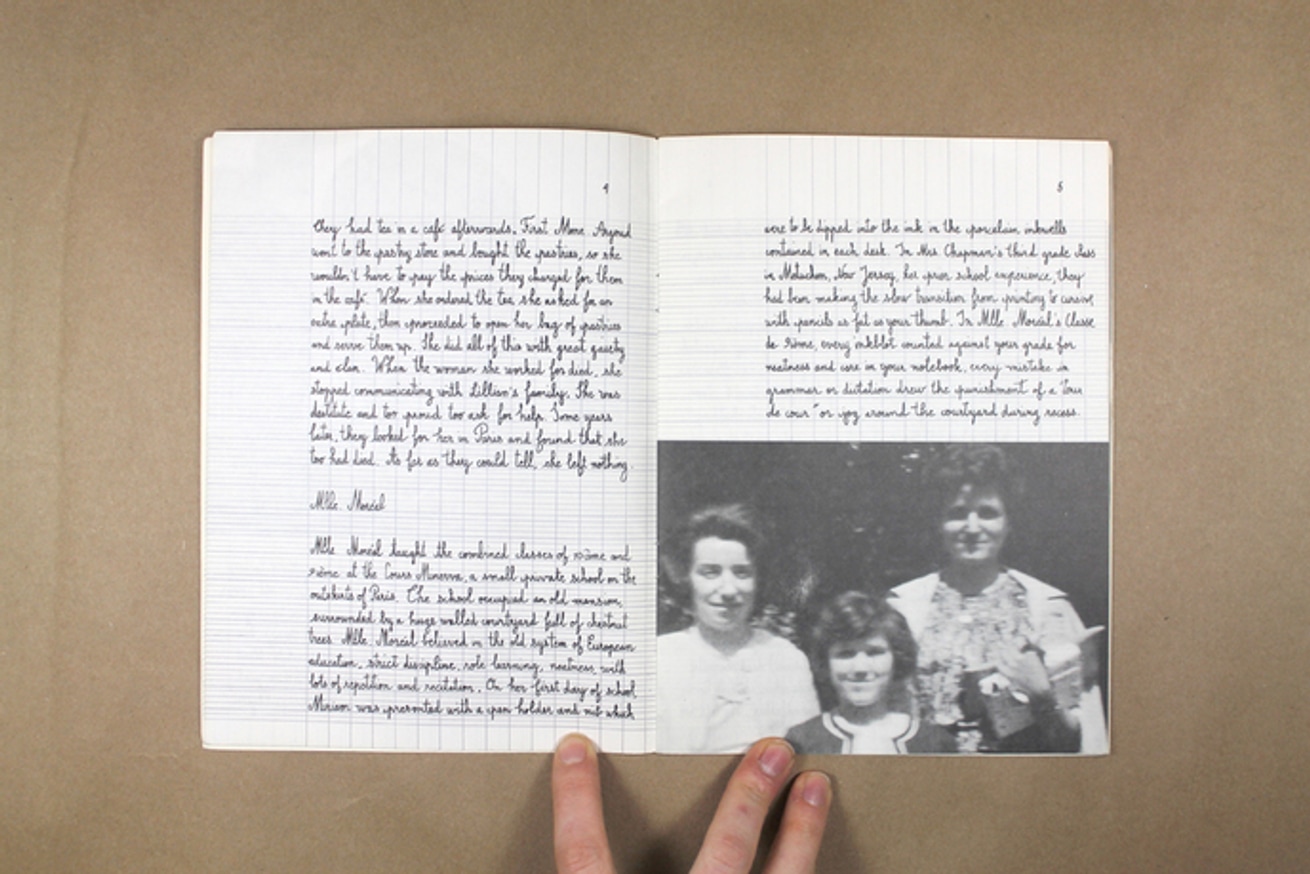 4
they had tea in a café afterwards. First Mme Argoud
went to the pastry store and bought the pastries, so she
wouldn't have to pay the prices they charged for them
in the café. When she ordered the tea she asked for an
extra plate, then proceeded to open her bag of pastries
and serve them up. She did all of this with great gaiety
and elan. When the woman she worked for died, she
stopped communicating with Lillian's family. She was
destitute and too proud too ask for help. Some years
later, they looked for her in Paris and found that she
too had died. As far as they could tell, she left nothing.
Mlle.
Mlle. taught the combined classes of 10ème and
9ième at the Cours Minerva, a small private school on the
outskirts of Paris. The school occupied an old mansion,
surrounded by a huge walled courtyard full of chestnut
trees. Mlle. believed in the old system of European
education, strict discipline, role learning, neatness, with
lots of repetition and recitation. On her first day of school
Miriam was presented with a pen holder and nib which
5
were to be dipped into the ink in the porcelain inkwells
contained in each desk. In Mrs. Chapman's third grade class
in Metuchen, New Jersey, her prior school experience, they
had been making the slow transition from printing to cursive
with pencils as fat as your thumb. In Mlle. Classe
de 9ième, every inkblot counted against your grade for
neatness and care in your notebook, every mistake in
grammar or dictation drew the punishment of a "Tour
de cour" or jog around the courtyard during recess.